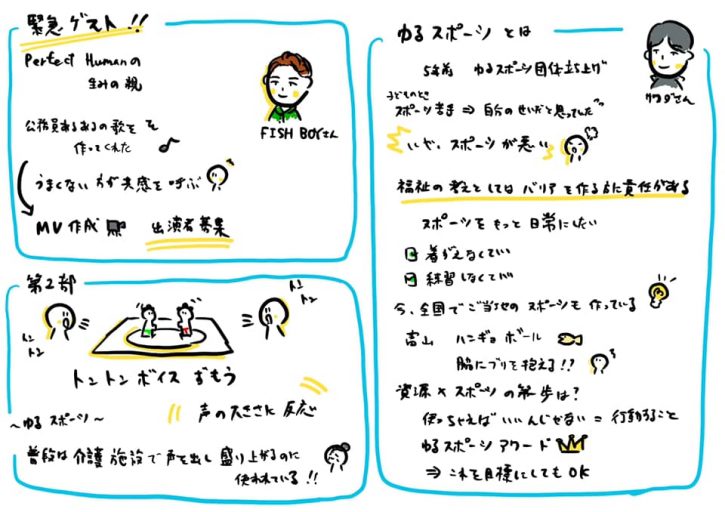 緊急ゲスト!!
Perfect Humanの
生みの親
FISH BOYさん
公務員あるあるの歌を
作ってくれた
うまくない方が共感を呼ぶ
MV作成 出演者募集
第2部
トントン
トントン
トントンボイスずもう
声の大きさに反応
〜ゆるスポーツ〜
普段は介護施設で声を出し盛り上がるのに
使われている!!
ゆるスポーツとは
5年前 ゆるスポーツ団体立ち上げ
サワダさん
子どものとき
スポーツ苦手⇒自分のせいだと思ってた
いや、スポーツが悪い
福祉の教えとしてはバリアを作る方に責任がある
スポーツをもっと日常にしたい
着がえなくていい
練習しなくていい
今、全国でご当地のスポーツも作っている
高山 ハンギョボール
脇にブリを抱える!!
資源×スポーツの第一歩は?
使っちゃえばいいんじゃない=行動すること
ゆるスポーツアワード
⇒これを目標にしてもOK